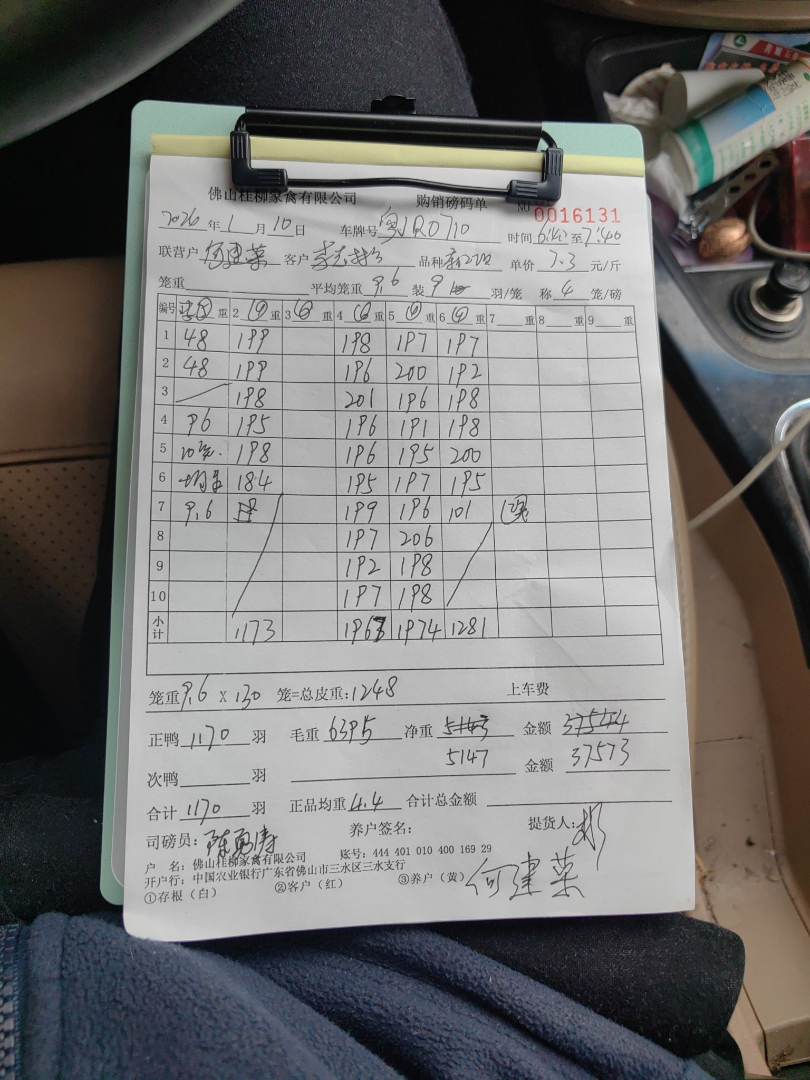 佛山桂柳家禽有限公司 购销磅码单 NO 0016131
2026年1月10日 车牌号 粤JR0710 时间 至7:40
联营户 何建菜 客户 品种 单价 7.3 元/斤
笼重 平均笼重 9.6 装 9 羽/笼 称 4 笼/磅
编号 重 2 重 3 重 4 重 5 重 6 重 7 重 8 重 9 重
1 48 199 198 197 197
2 48 199 196 200 192
3 198 201 196 198
4 96 195 196 191 198
5 10笼 198 196 195 200
6 均重 184 195 197 195
7 9.6 199 196 101
8 197 206
9 192 198
10 197 198
小计 1173 1967 1974 1281
笼重 9.6 X 130 笼=总皮重:1248 上车费
正鸭 1170 羽 毛重 6395 净重 金额
5147 金额 37573
次鸭 羽
合计 1170 羽 正品均重 4.4 合计总金额
司磅员: 陈勇涛 养户签名: 提货人:
户 名: 佛山桂柳家禽有限公司 账号: 444 401 010 400 169 29
开户行: 中国农业银行广东省佛山市三水区三水支行
①存根(白) ②客户(红) ③养户(黄) 何建菜